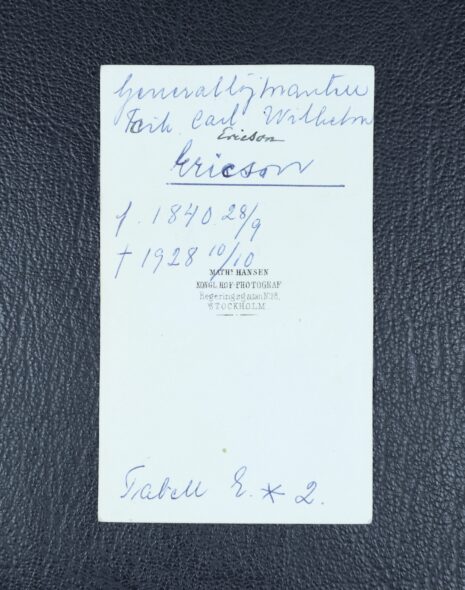 Generallöjtnanten
Carl Wilhelm
Ericson
Ericson
f. 1840 28/9
† 1928 10/10
MATHS HANSEN
KONGL. HOF-PHOTOGRAF
Regeringsgatan № 18,
STOCKHOLM
Tabell E. * 2.